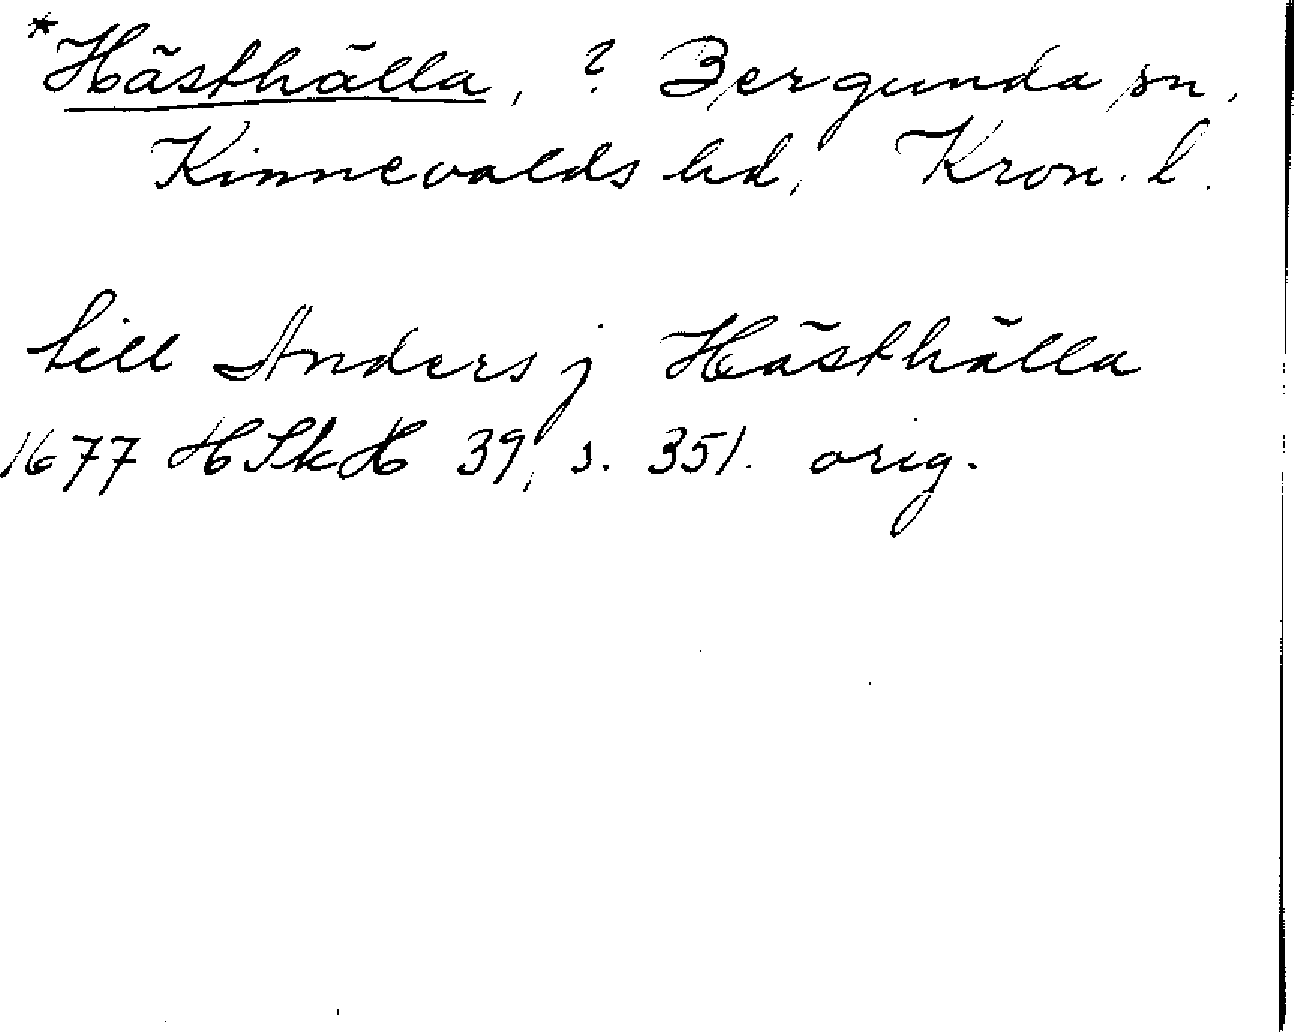 *Hästhälla, ? Bergunda sn,
Kinnevalds hd, Kron. l.
till Anders j Hästhälla
1677 HSkH 39, s. 351. orig.